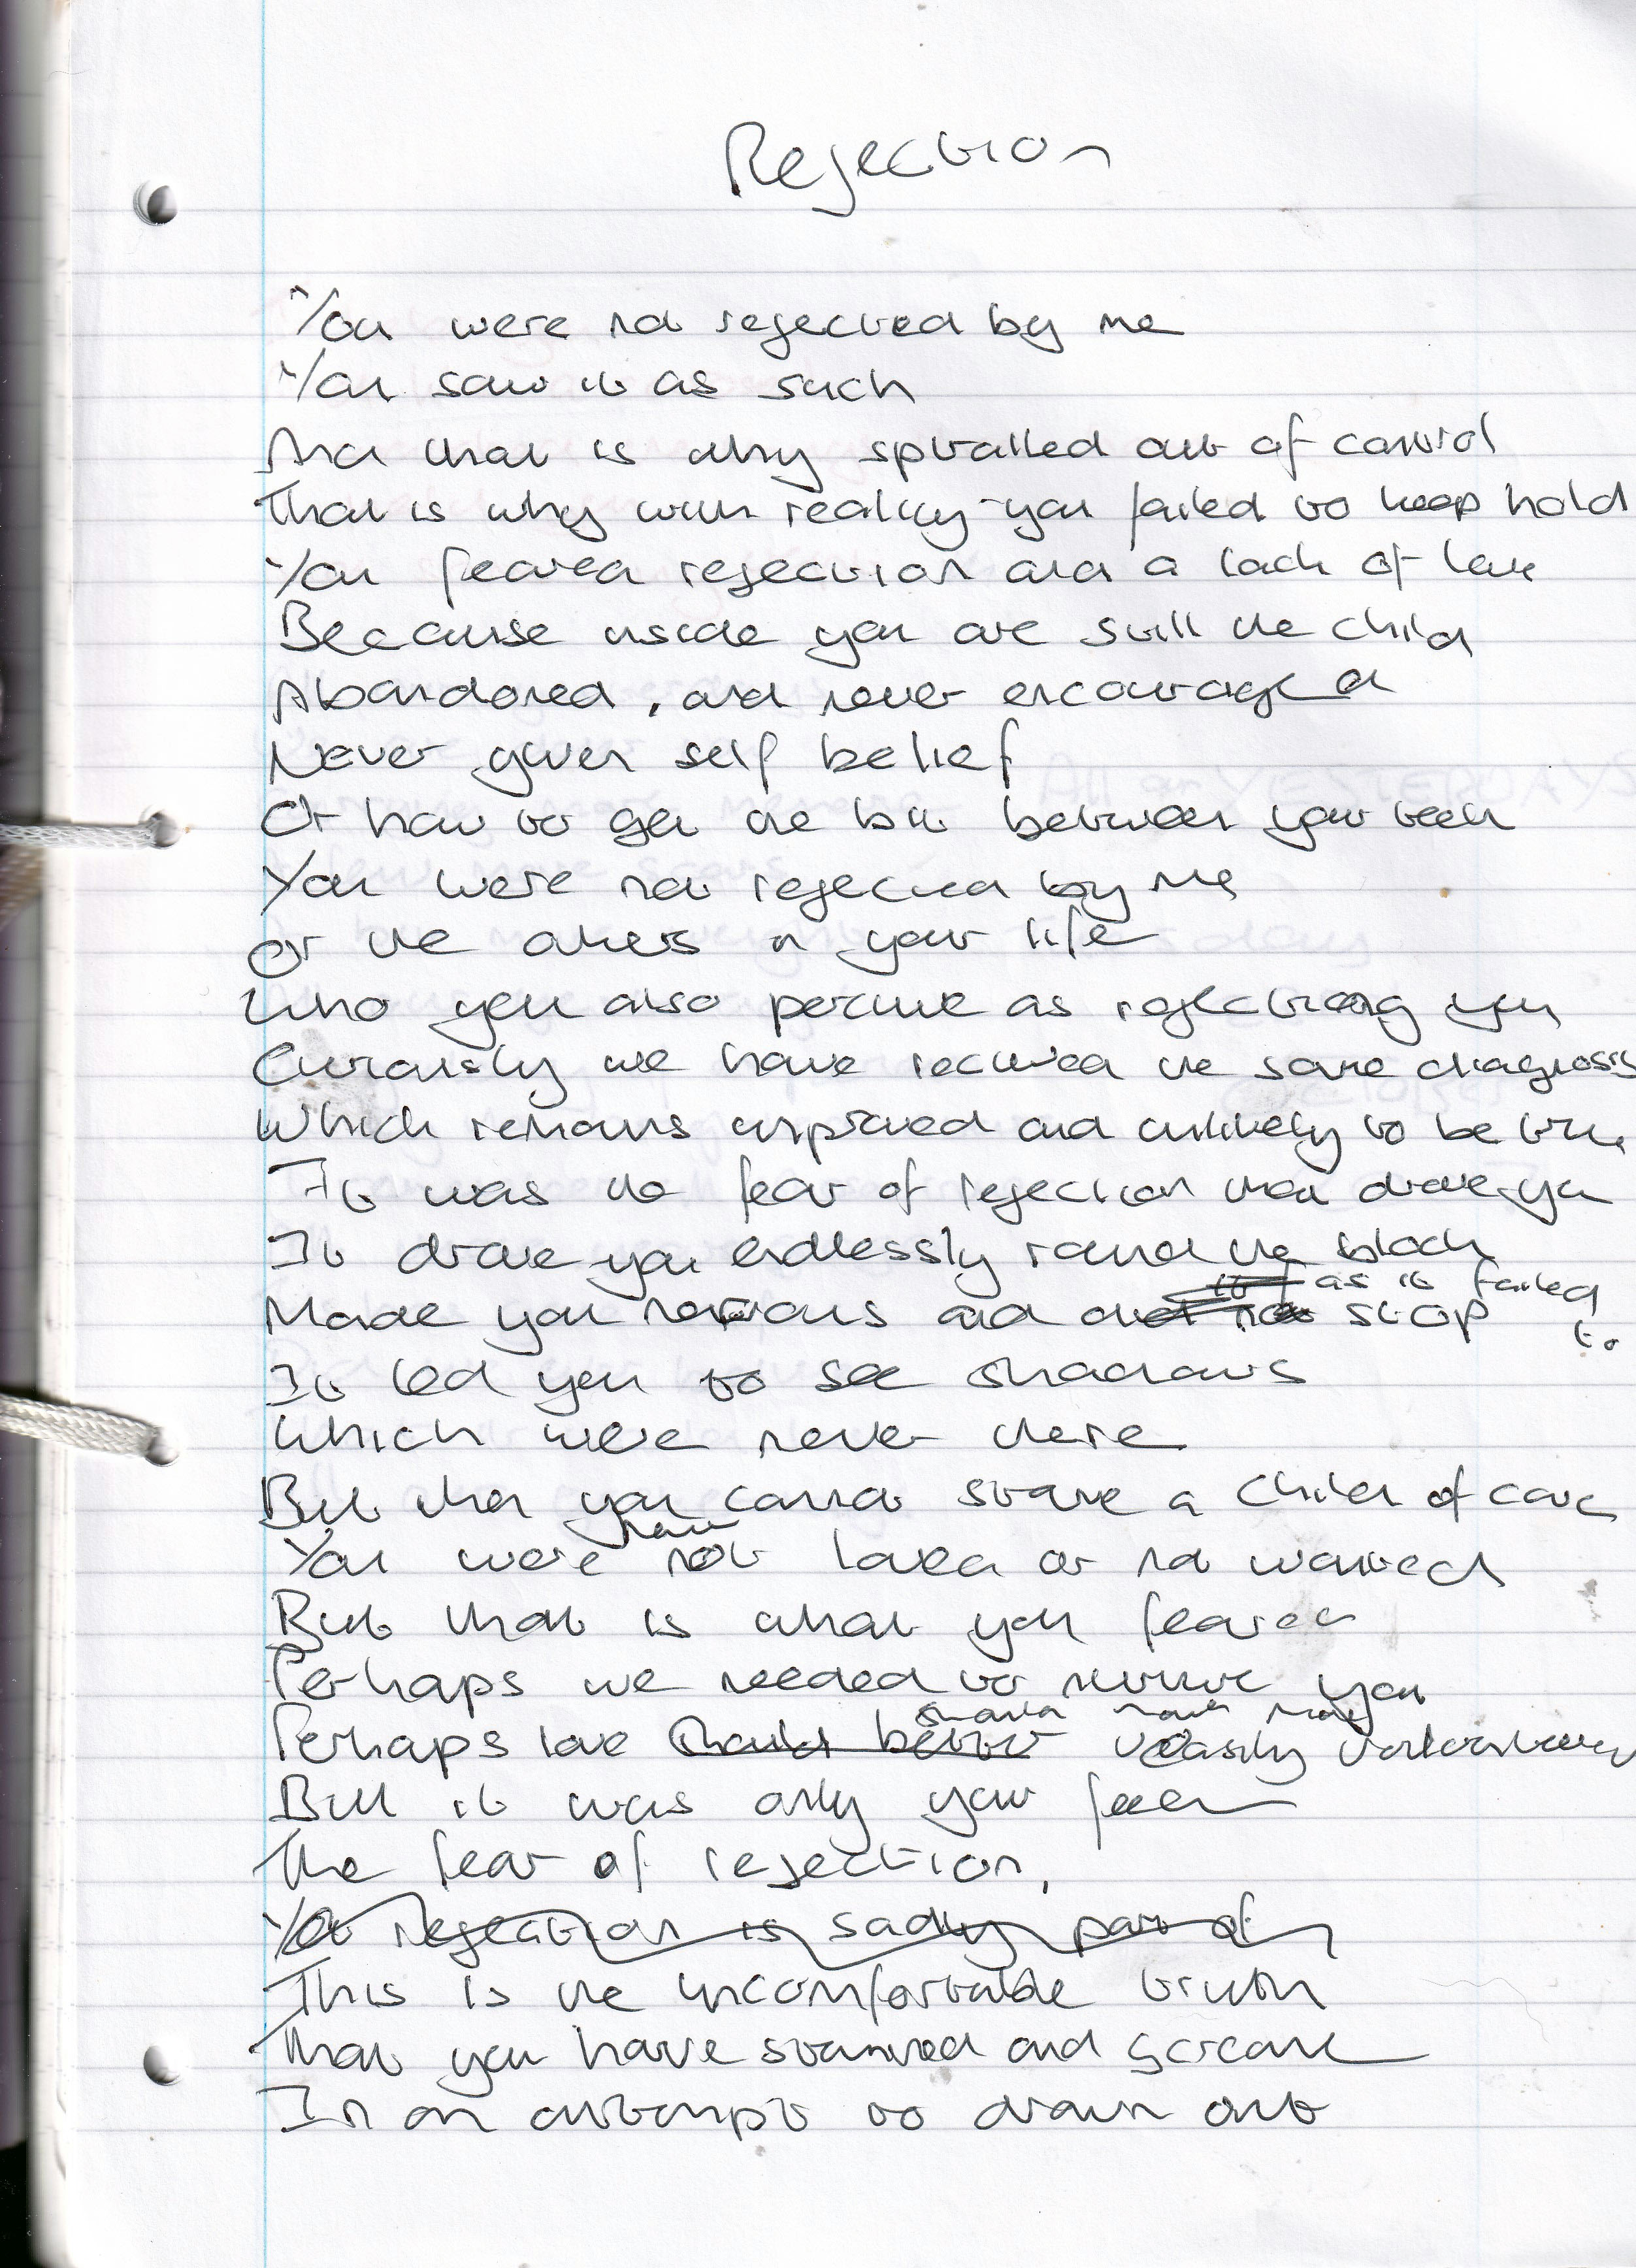 Rejection
You were not rejected by me
You saw it as such
And that is why spiralled out of control
That is why with reality you failed to keep hold
You feared rejection and a lack of love
Because inside you are still the child
Abandoned, and never encouraged
Never given self belief
Or how to get the bit between your teeth
You were not rejected by me
or the others in your life
Who you also perceive as rejecting you
Curiously we have received the same diagnosis
Which remains unproved and unlikely to be true
It was the fear of rejection that drove you
It drove you endlessly round the block
it as it failed to
Made you nervous and and not stop
It led you to see shadows
Which were never there
But then you cannot starve a child of care
You were not loved or not wanted
But that is what you feared
Perhaps we needed to you
should have more
Perhaps love should better easily
But it was only your fear
The fear of rejection,
Yet rejection is sadly part of
This is the uncomfortable truth
That you have stamped and scream
In an attempt to drown out